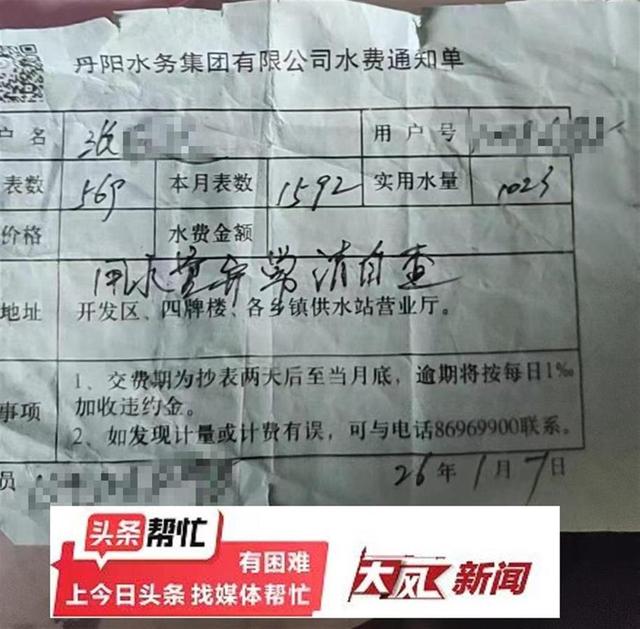 丹阳水务集团有限公司水费通知单
户名 张 用户号
表数 569 本月表数 1592 实用水量 1023
价格 水费金额
用水量异常请自查
地址 开发区、四牌楼、各乡镇供水站营业厅。
1、交费期为抄表两天后至当月底，逾期将按每日1‰
事项 加收违约金。
2、如发现计量或计费有误，可与电话86969900联系。
员 26年1月7日
头条帮忙
有困难
上今日头条 找媒体帮忙
大风新闻